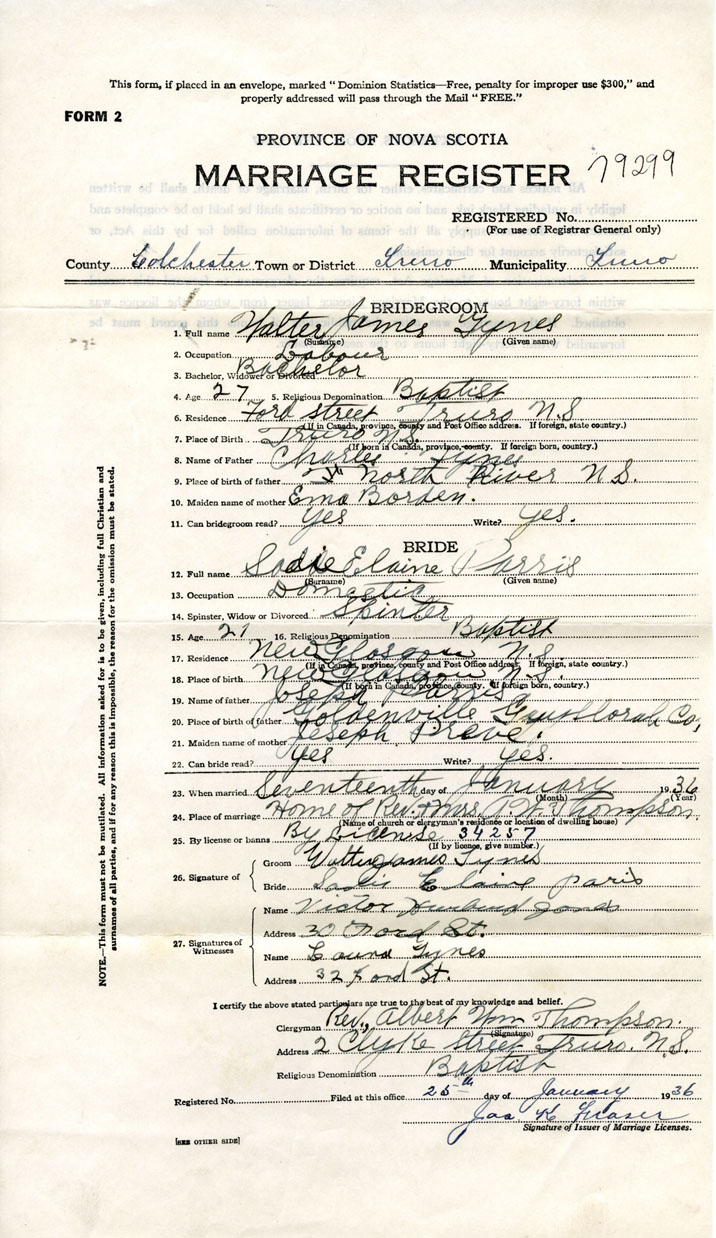 This form, if placed in an envelope, marked "Dominion Statistics—Free, penalty for improper use $300," and
properly addressed will pass through the Mail "FREE."
FORM 2
PROVINCE OF NOVA SCOTIA
MARRIAGE REGISTER 79299
REGISTERED No.
(For use of Registrar General only)
County Colchester Town or District Truro Municipality Truro
BRIDEGROOM
1. Full name Walter James Tynes
(Surname) (Given name)
2. Occupation Labour
3. Bachelor, Widower or Divorced Bachelor
4. Age 27 5. Religious Denomination Baptist
6. Residence Ford street Truro N.S
(If in Canada, province, county and Post Office address. If foreign, state country.)
7. Place of Birth Truro N.S.
(If born in Canada, province, county. If foreign born, country.)
8. Name of Father Charles Tynes
9. Place of birth of father North River N.S.
10. Maiden name of mother Ema Borden.
11. Can bridegroom read? Yes Write? Yes.
BRIDE
12. Full name Sadie Elaine Parris
(Surname) (Given name)
13. Occupation Domestic
14. Spinster, Widow or Divorced Spinter
15. Age 21 16. Religious Denomination Baptist
17. Residence New Glasgow N.S.
(If in Canada, province, county and Post Office address. If foreign, state country.)
18. Place of birth New Glasgow N.S.
(If born in Canada, province, county. If foreign born, country.)
19. Name of father Joseph Parris
20. Place of birth of father Goldenville Co,
21. Maiden name of mother Joseph
22. Can bride read? Yes Write? Yes.
23. When married Seventeenth day of January 1936
(Month) (Year)
24. Place of marriage Home of Rev. & Mrs. A.W. Thompson
(Name of church or clergyman's residence or location of dwelling house)
25. By license or banns By License 34257
(If by license, give number.)
26. Signature of
Groom Walter James Tynes
Bride Sadie Elaine Paris
27. Signatures of Witnesses
Name Victor
Address 30 Ford St.
Name Tynes
Address 32 Ford St.
I certify the above stated particulars are true to the best of my knowledge and belief.
Clergyman Rev., Albert Wm Thompson.
(Signature)
Address 2 Clyke Street Truro. N.S.
Religious Denomination Baptist
Registered No. Filed at this office 25th day of January 1936
Jas K Fraser
Signature of Issuer of Marriage Licenses.
[SEE OTHER SIDE]
NOTE.—This form must not be mutilated. All information asked for is to be given, including full Christian and
surnames of all parties, and if for any reason this is impossible, the reason for the omission must be stated.